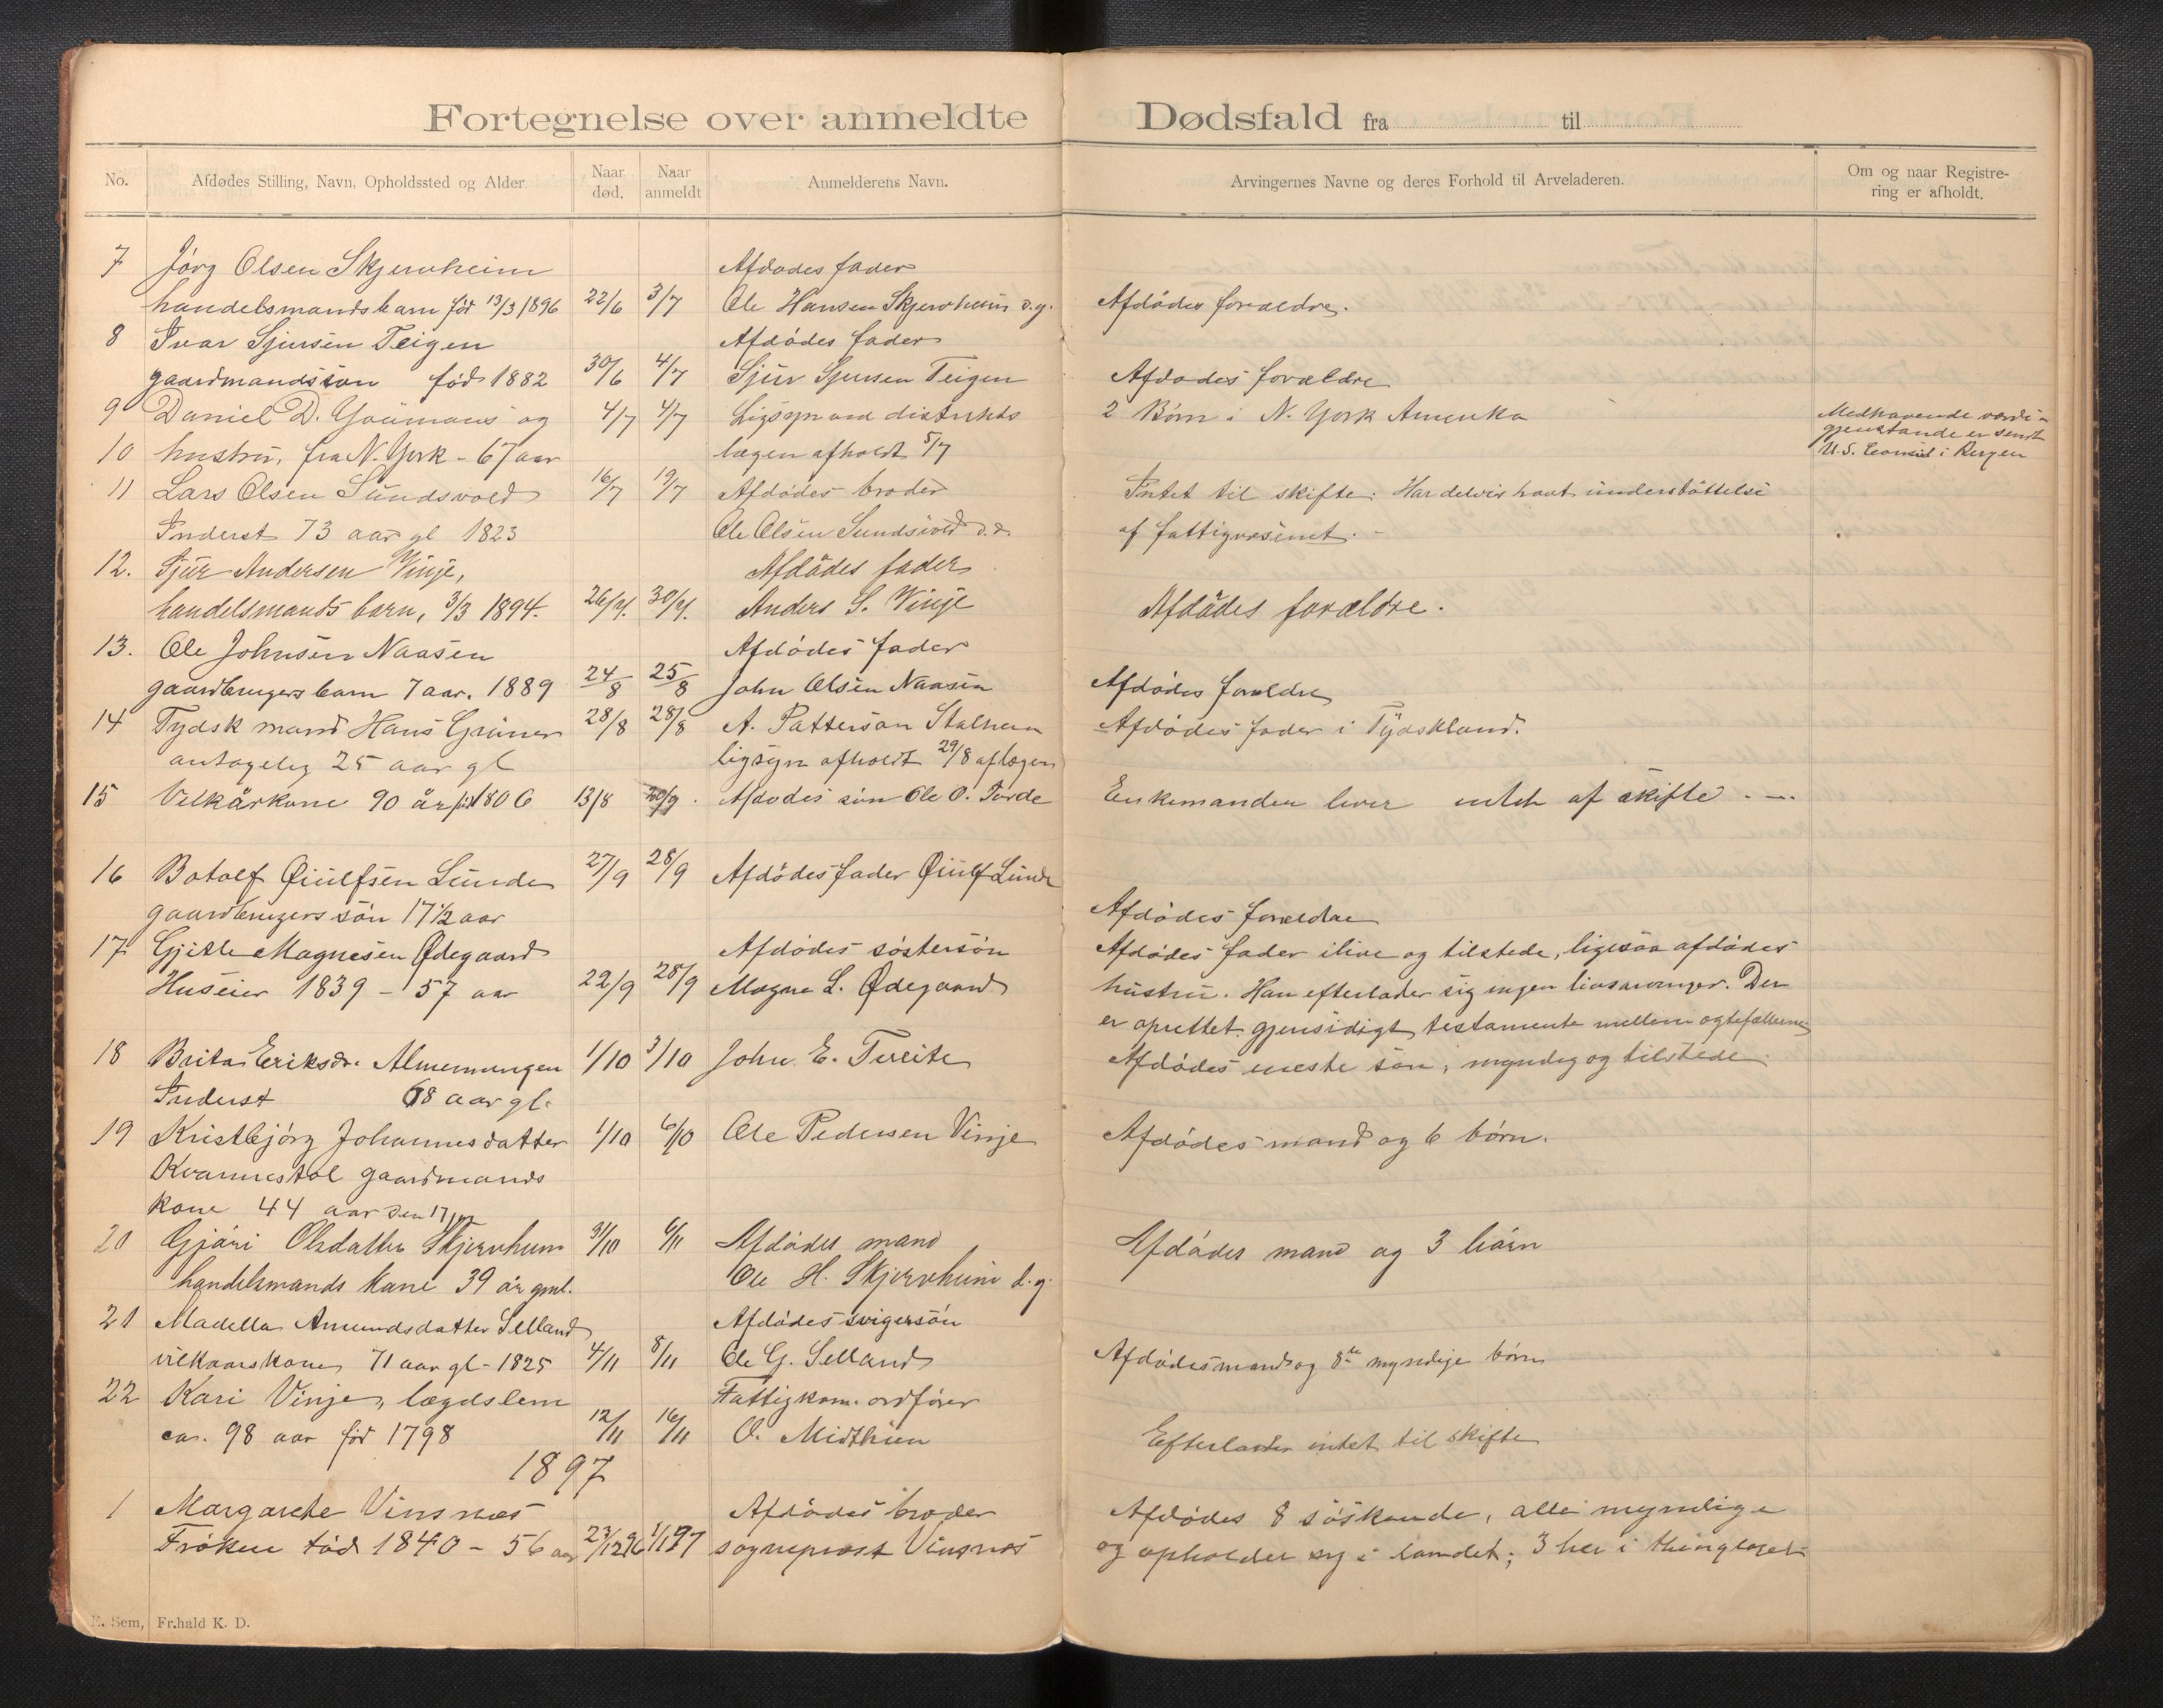 Fortegnelse over anmeldte Dødsfald fra til
No. Afdødes Stilling, Navn, Opholdssted og Alder. Naar død. Naar anmeldt Anmelderens Navn. Arvingernes Navne og deres Forhold til Arveladeren. Om og naar Registrering er afholdt.
7 Jørg Olsen Skjervheim Afdødes fader
handelsmandsbarn før 13/3 1896 22/6 3/7 Ole Hansen Skjervheim d.y. Afdødes forældre.
8 Ivar Sjursen Teigen Afdødes fader
gaardmandssøn født 1882 30/6 4/7 Sjur Sjursen Teigen Afdødes forældre
9 Daniel D. Youmans og 4/7 4/7 Ligsyn ved distrikts 2 Børn i N. York Amerika Medhavende værdi-
gjenstande er sendt
10 hustru, fra N. York - 67 aar lægen afholdt 5/7 U.S. Consul i Bergen
11 Lars Olsen Sundsvold 16/7 19/7 Afdødes broder Intet til skifte. Har delvis havt understøttelse
Inderst 73 aar gl 1823 Ole Olsen Sundsvold af fattigvæsenet.
12. Sjur Andersen Vinje, Afdødes fader
handelsmands barn, 3/3 1894. 26/7. 30/7. Anders S. Vinje Afdødes forældre.
13. Ole Johnsen Naasen Afdødes fader
gaardbrugers barn 7 aar. 1889 24/8 25/8 John Olsen Naasen Afdødes forældre
14 Tydsk mand Hans Grüner 28/8 28/8 A. Patterson Stalheim Afdødes fader i Tydskland.
antagelig 25 aar gl ligsyn afholdt 29/8 af lægen
15 Velkårkone 90 år født 1806 13/8 20/9. Afdødes søn Ole O. Tvrde Enkemanden lever intet af skifte. —.
16 Botolf Øiulfsen Lunde 27/9 28/9 Afdødes fader Øiulf Lunde
gaardbrugers søn 17½ aar Afdødes forældre
17 Gjitle Magnesen Ødegaard Afdødes søstersøn Afdødes fader ilive og tilstede, ligesaa afdødes
Huseier 1839 - 57 aar 22/9 28/9 Magne L. Ødegaard hustru. Han efterlader sig ingen livsarvinger. Der
er oprettet gjensidigt testamente mellem ægtefællerne
18 Brita Eriksdr. Almenningen 1/10 3/10 John E. Tveite Afdødes eneste søn, myndig og tilstede.
Inderst 68 aar gl.
19 Kristbjørg Johannesdatter 1/10 6/10 Ole Pedersen Vinje Afdødes mand og 6 børn.
Kvannestøl gaardmands
kone 44 aar den 17
20 Gjøri Olsdatter Skjervheim 31/10 6/11 Afdødes mand Afdødes mand og 3 børn
handelsmands kone 39 år gml. Ole H. Skjervheim d.y.
21 Madella Amundsdatter Selland Afdødes svigersøn
vilkaarskone 71 aar gl - 1825 4/11 8/11 Ole G. Selland Afdødes mand og 8te myndige børn
22 Kari Vinje, lægdslem Fattigkom. ordfører
ca. 98 aar før 1798 12/11 16/11 O. Midthun Efterlader intet til skifte
1897
1 Margarethe Vinsnæs Afdødes broder Afdødes 8 søskende, alle myndige
Frøken født 1840 - 56 aar 23/12 96 1/1 97 sogneprest Vinsnæs og opholder sig i landet; 3 her i thinglaget
E. Sem, Fr.hald K. D.